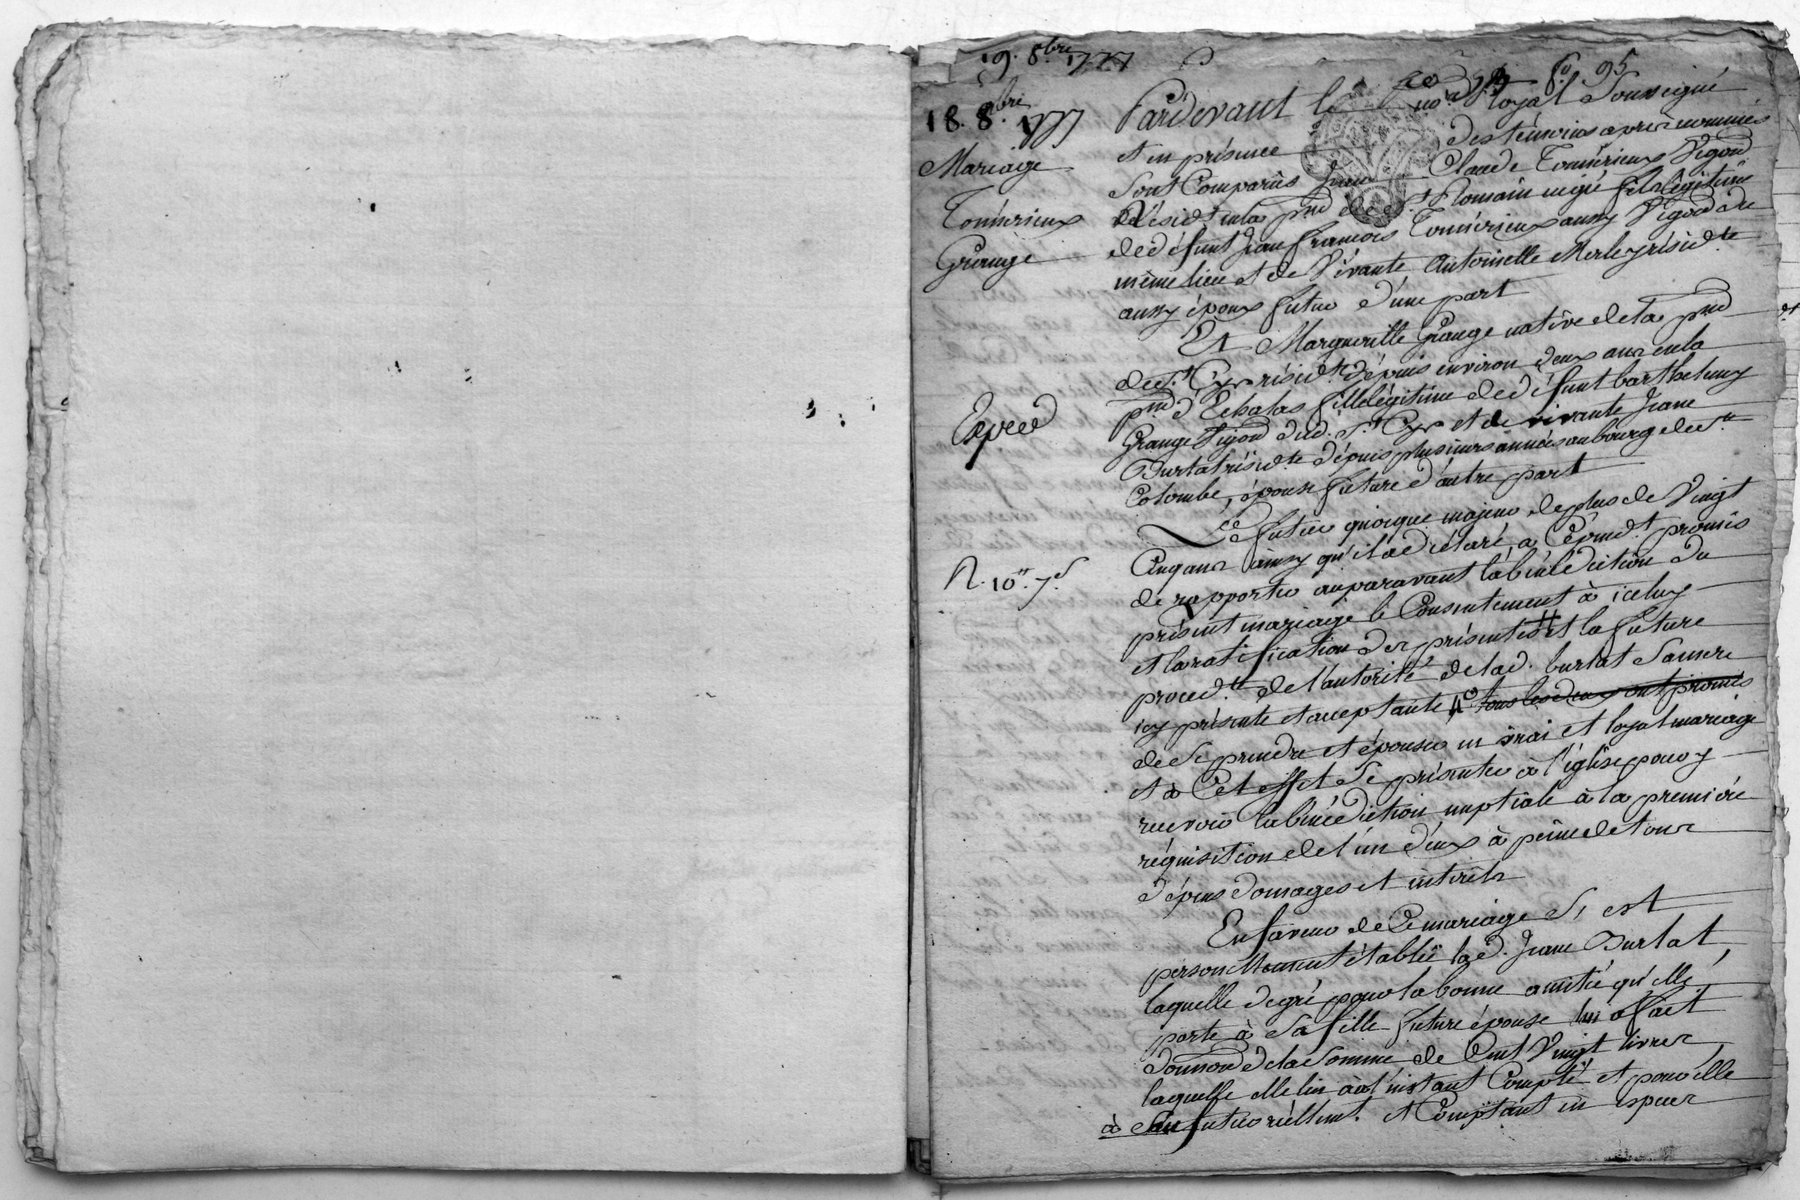 19. 8bre 1777
fo. 95
18. 8bre 1777
Mariage
Tonnérieux
Grange
Expeé
R. 10tt. 7s.
Pardevant le nore Royal Soussigné
et en présence des témoins après nommés
Sont Comparûs Jean Claude Tonnérieux Vigon
Résidt en la psse de St Romain en gié fils légitime
de défunt Jean francois Tonnérieux aussy Vigon du
même lieu et de Vivante Antoinette Merley résidte
aussy époux futur d'une part
Et Marguerite Grange native de la psse
de St Cyr résidte depuis environ deux ans en la
psse d'Echalas fille légitime de défunt barthelemy
Grange Vigon dud. St Cyr et de vivante Jeane
Burlat résidte depuis plusieurs années au bourg de Ste
Colombe, épouse future d'autre part
Le futur quoique majeur de plus de Vingt
Cinq ans ainsy qu'il a déclaré, a Cépendt promis
de rapporter auparavant la bénédiction du
présent mariage le Consentement à iceluy
et la ratification des présentes et la future
procedte de l'autorité de lad. burlat Sa mere
icy présente et acceptante tous les deux ont promis
de Se prendre et épouser en vrai et loyal mariage
et à Cet effet Se présenter à l'église pour y
recevoir la bénédiction nuptiale à la premiére
réquisition de l'un d'eux à peine de tous
dépens domages et intérêts
En faveur de Ce mariage S'est
personnellement établie lad. Jeane Burlat,
laquelle de gré pour la bonne amitié qu'elle
porte à Sa fille future épouse lui a fait
donnaon de la Somme de Cent Vingt livres,
laquelle elle lui a à l'instant Compté et pour elle
à Son futur réellemt. et Comptant en espèces